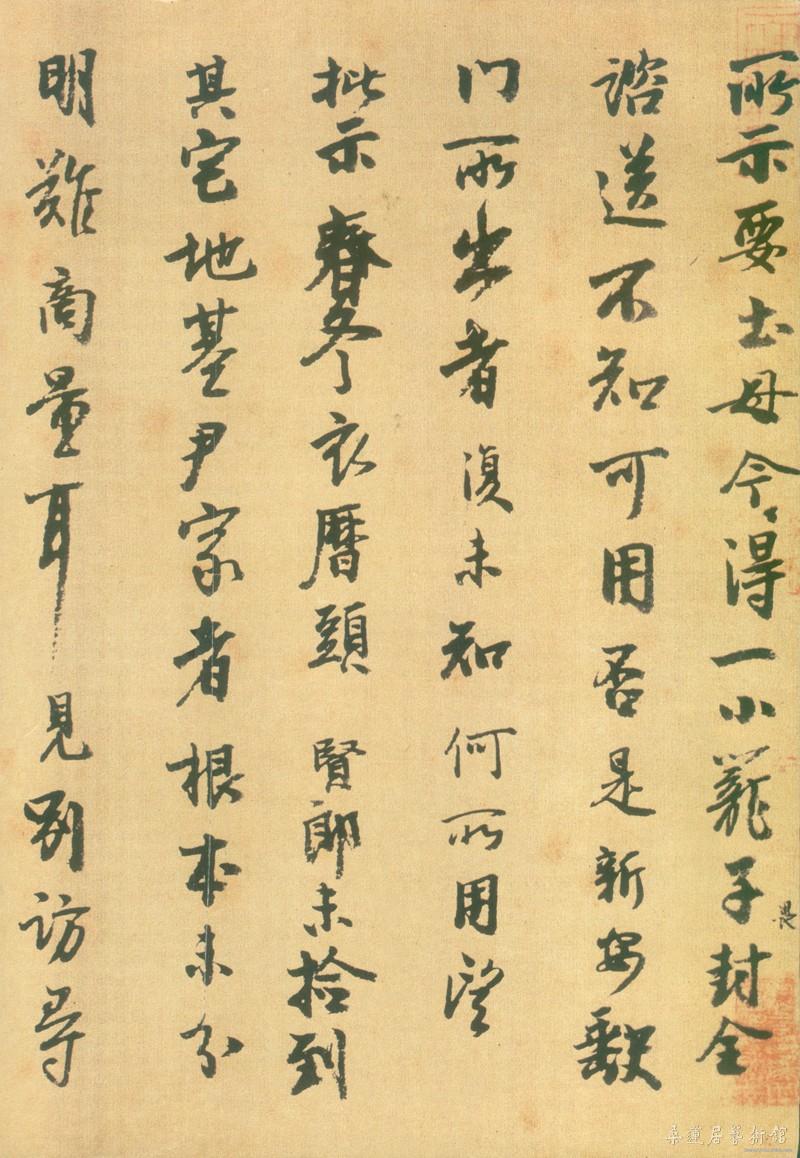 所示要土母今得一小籠子封全
諮送不知可用否是新安缺
門所出者復未知何所用望
批示春冬衣曆頭賢郎未拾到
其宅地基尹家者根本未分
明難商量耳見別訪尋
桑蓮居藝術館